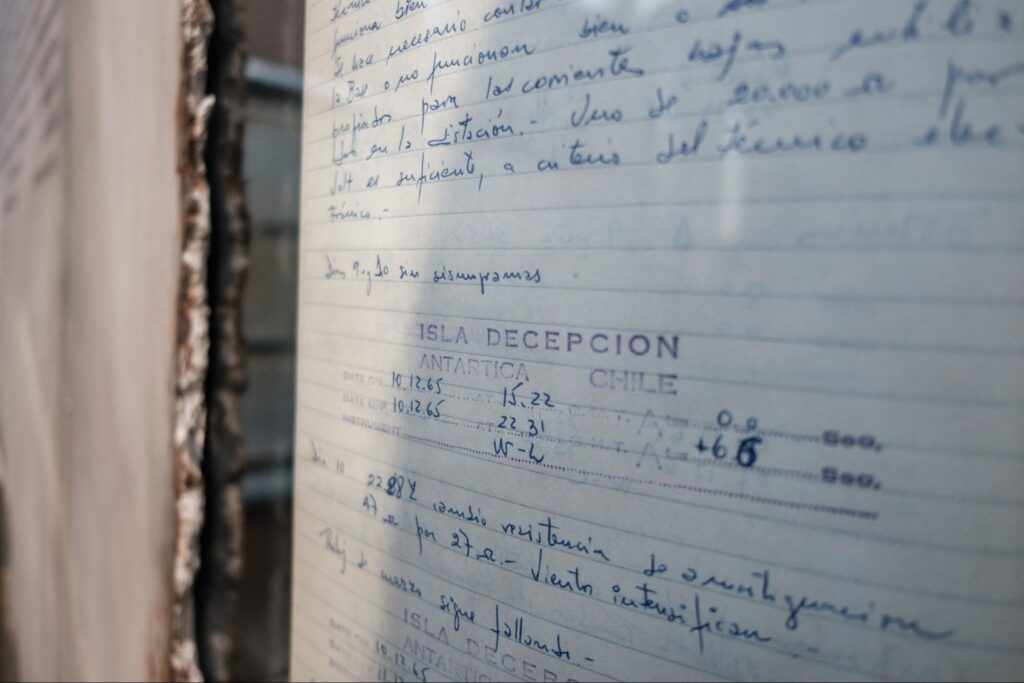 funciona bien
Se hace necesario
la Base o no funcionan bien o
propiados para las corrientes bajas
en la Estación.- Uno de 20.000 Ω por
Volt es suficiente, a criterio del técnico elec
trónico.-
Días 9 y 10 sin sismogramas
ISLA DECEPCION
ANTARTICA CHILE
DATE ON 10.12.65 AT 15.22 G.M.T. Δ = 0.0 Seg.
DATE OFF 10.12.65 AT 22.31 G.M.T. Δ = +6.6 Seg.
INSTRUMENT W-L
Día 10
2228Z cambio resistencia de amortiguación
47 Ω por 27 Ω.- Viento intensifican
Reloj de marzo sigue fallando.-
ISLA DECEP
ANTARTI
DATE ON 10.12.65